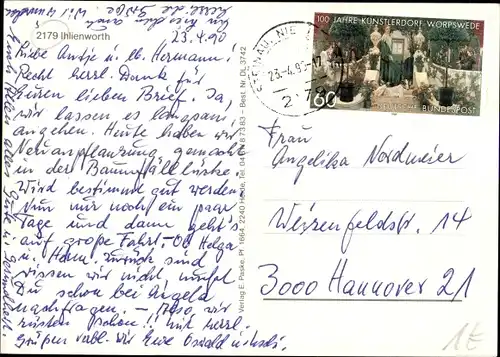 2179 Ihlienworth
23.4.90
Liebe Antje u. lb. Hermann!
Recht herzl. Dank für
Euren lieben Brief. Ja,
wir lassen es langsam
angehen. Heute haben wir
Neuanpflanzung gemacht
in der Baumfällücke.
Wird bestimmt gut werden.
Nun nur noch ein paar
Tage und dann geht's
auf große Fahrt. Ob Helga
u. Hann. zurück sind
wissen wir nicht, mußt
Du schon bei Angela
nachfragen. – Also, wir
rüsten schon!! Mit herzl.
Grüßen verbl. wir Eure Oswald
Verlag E. Paske, Pf. 1664, 2240 Heide, Tel. Best. Nr. DL 3742
23.-4.90-17
2179
100 JAHRE KÜNSTLERDORF WORPSWEDE
60
DEUTSCHE BUNDESPOST
Frau
Angelika Nordmeier
Weizenfeldstr. 14
3000 Hannover 21
1E